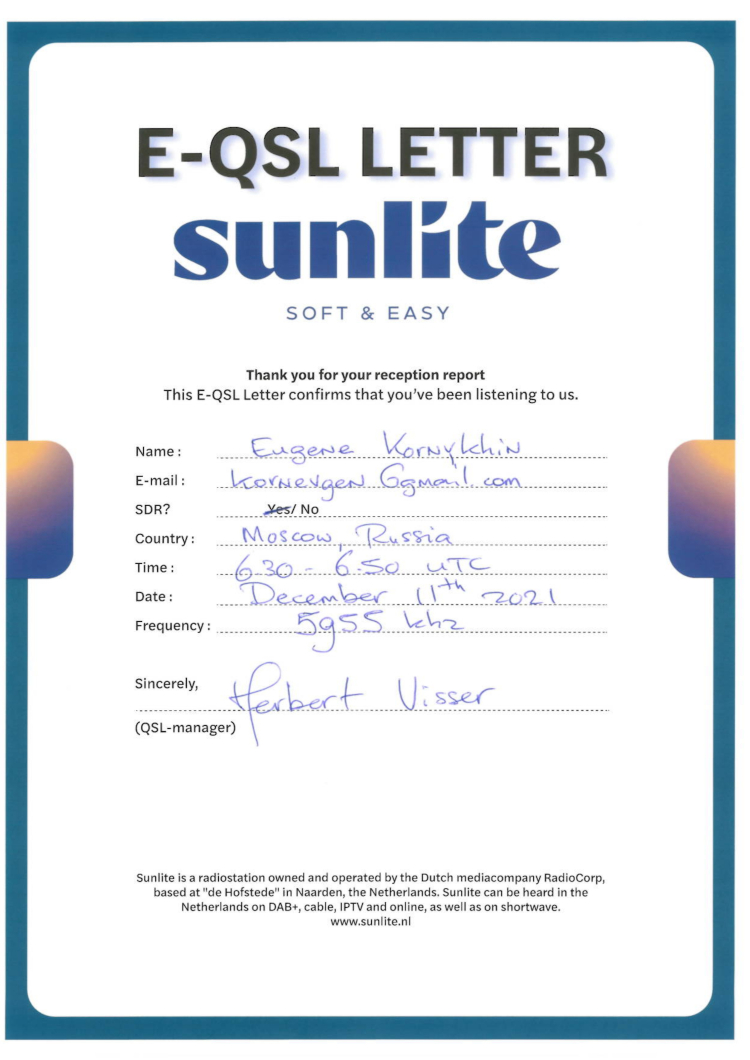 E-QSL LETTER
sunlite
SOFT & EASY
Thank you for your reception report
This E-QSL Letter confirms that you've been listening to us.
Name: Eugene Kornykhin
E-mail: kornevgen@gmail.com
SDR? Yes/ No
Country: Moscow, Russia
Time: 6.30 - 6.50 UTC
Date: December 11th 2021
Frequency: 5955 khz
Sincerely, Herbert Visser
(QSL-manager)
Sunlite is a radiostation owned and operated by the Dutch mediacompany RadioCorp,
based at "de Hofstede" in Naarden, the Netherlands. Sunlite can be heard in the
Netherlands on DAB+, cable, IPTV and online, as well as on shortwave.
www.sunlite.nl